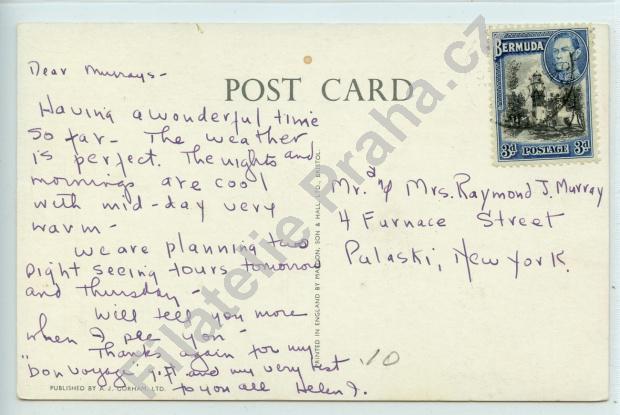 POST CARD
BERMUDA
3d POSTAGE 3d
Dear Murrays -
Having a wonderful time
so far - The weather
is perfect. The nights and
mornings are cool
with mid-day very
warm -
We are planning two
sight seeing tours tomorrow
and Thursday -
Will tell you more
when I see you -
Thanks again for my
"bon voyage gift and my very best
to you all Helen J.
Mr. & Mrs. Raymond J. Murray
4 Furnace Street
Pulaski, New York.
10
PRINTED IN ENGLAND BY MARDON, SON & HALL, LTD., BRISTOL.
PUBLISHED BY A. J. GORHAM, LTD.
Filatelie Praha.cz